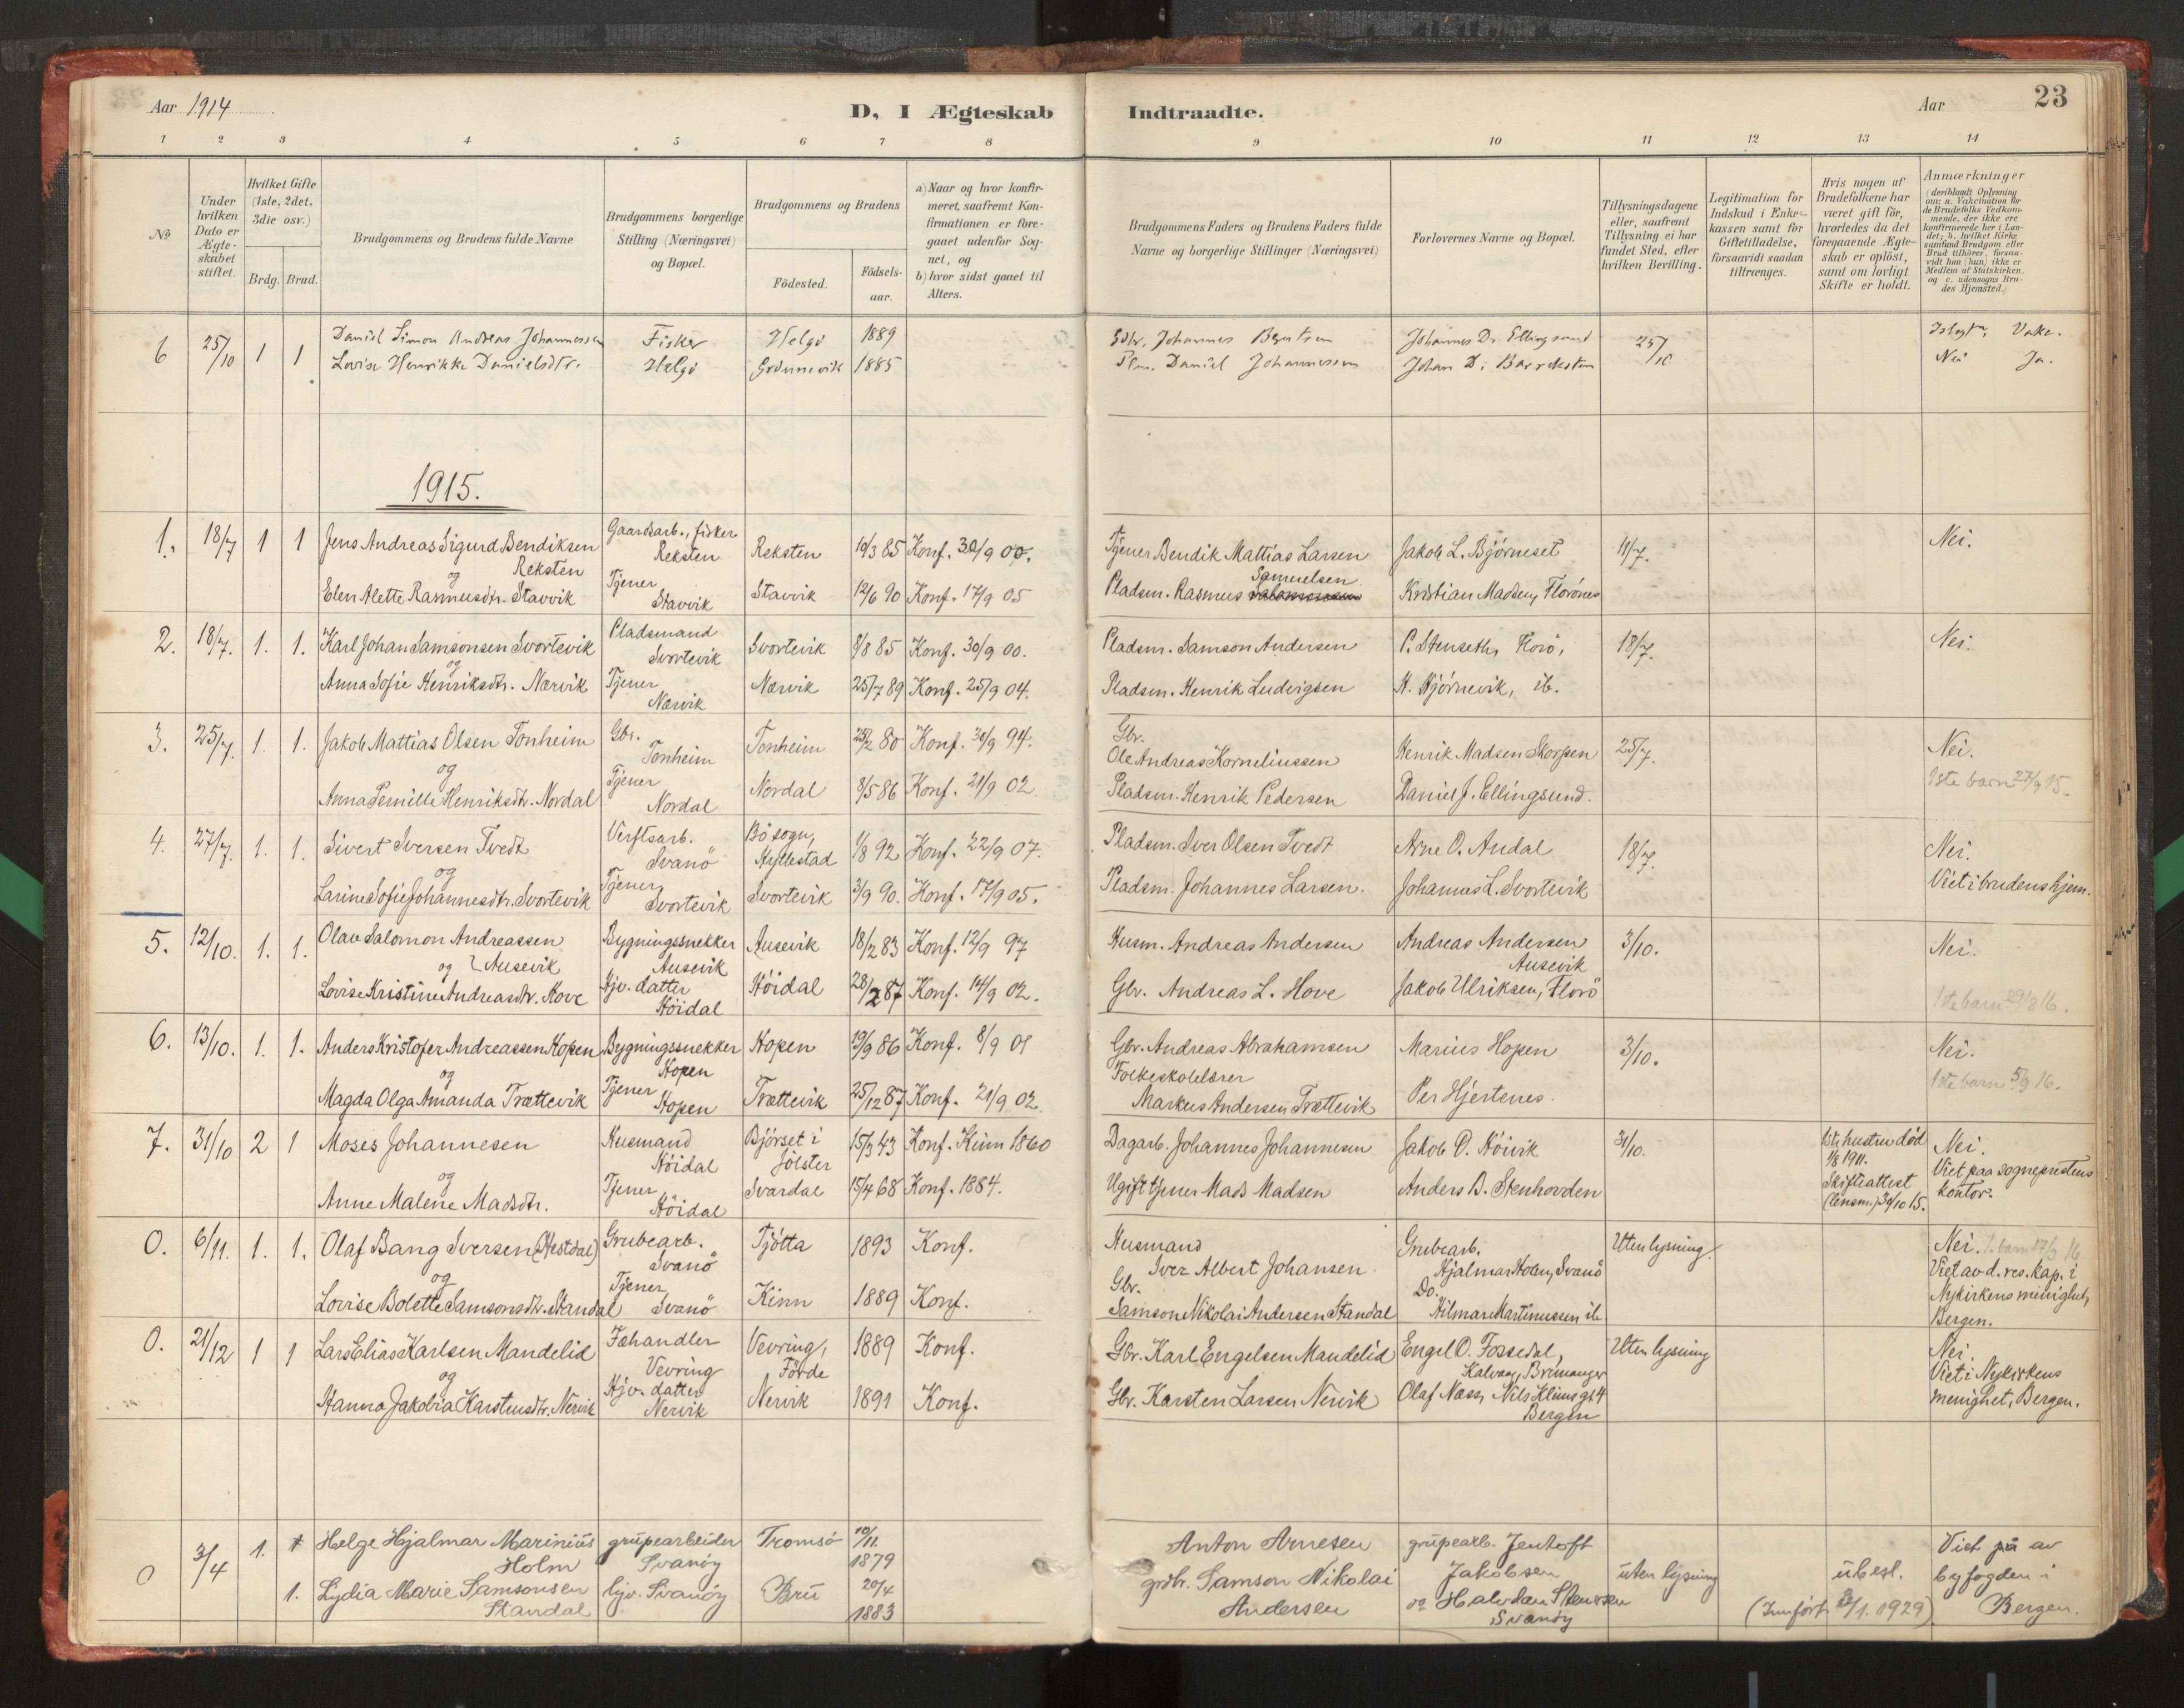 Aar 1914
D, I Ægteskab Indtraadte.
Aar
23
1 2 3 4 5 6 7 8 9 10 11 12 13 14
No
Under hvilken Dato er Ægteskabet stiftet.
Hvilket Gifte (1ste, 2det, 3die osv.)
Brdg. Brud.
Brudgommens og Brudens fulde Navne
Brudgommens borgerlige Stilling (Næringsvei) og Bopæl.
Brudgommens og Brudens
Födested.
Födselsaar.
a) Naar og hvor konfirmeret, saafremt Konfirmationen er foregaaet udenfor Sognet, og
b) hvor sidst gaaet til Alters.
Brudgommens Faders og Brudens Faders fulde Navne og borgerlige Stillinger (Næringsvei)
Forlovernes Navne og Bopæl.
Tillysningsdagene eller, saafremt Tillysning ei har fundet Sted, efter hvilken Bevilling.
Legitimation for Indskud i Enkekassen samt for Giftetilladelse, forsaavidt saadan tiltrænges.
Hvis nogen af Brudefolkene har været gift för, hvorledes da det foregaaende Ægteskab er oplöst, samt om lovligt Skifte er holdt.
Anmærkninger
(deriblandt Oplysning om: a. Vakcination for de Brudefolks Vedkommende, der ikke ere konfirmerede her i Landet; b. hvilket Kirkesamfund Brudgom eller Brud tilhörer, forsaavidt han (hun) ikke er Medlem af Statskirken, og c. udensogns Brudes Hjemsted.)
6 25/10 1 1 Daniel Simon Andreas Johannessen Fisker Helgö 1889 Gdbr. Johannes Johannes Dr. Ellingsund 25/10 Vakc.
Lovise Henrikke Danielsdtr. Helgö Grönnevik 1885 Daniel Johannessen Johan D. Nei Ja.
1915.
1. 18/7 1 1 Jens Andreas Sigurd Bendiksen Reksten Gaardsarb., fisker Reksten Reksten 19/3 85 Konf. 30/9 00. Tjener Bendik Mattias Larsen Jakob L. Björneset 11/7. Nei.
og
Elen Alette Rasmusdtr. Stavvik Tjener Stavvik Stavvik 12/6 90 Konf. 17/9 05 Pladsm. Rasmus Samuelsen Kristian Madsen, Florönes
2. 18/7. 1. 1. Karl Johan Samsonsen Svortevik Pladsmand Svortevik Svortevik 8/8 85 Konf. 30/9 00. Pladsm. Samson Andersen P. Stenseth, Florö, 18/7. Nei.
og
Anna Sofie Henriksdtr. Nærvik Tjener Nærvik Nærvik 25/7 89 Konf. 25/9 04. Pladsm. Henrik Ludvigsen H. Björnevik, ib.
3. 25/7. 1. 1. Jakob Mattias Olsen Tonheim Gbr. Tonheim Tonheim 25/2 80 Konf. 30/9 94. Gbr. Ole Andreas Korneliussen Henrik Madsen Skorpen 25/7. Nei.
og
Anna Pernille Henriksdtr. Nordal Tjener Nordal Nordal 8/5 86 Konf. 21/9 02. Pladsm. Henrik Pedersen Daniel J. Ellingsund. 1ste barn 27/9 15.
4. 27/7. 1. 1. Sivert Iversen Tvedt Verftsarb. Svanö Bö sogn, Hyllestad 1/8 92 Konf. 22/9 07. Pladsm. Iver Olsen Tvedt Arne O. Andal 18/7. Nei.
og
Larine Sofie Johannesdtr. Svortevik Tjener Svortevik Svortevik 3/9 90. Konf. 17/9 05. Pladsm. Johannes Larsen. Johannes L. Svortevik Viet i brudens hjem.
5. 12/10. 1. 1. Olav Salomon Andreassen Ausevik Bygningssnekker Ausevik Ausevik 18/2 83 Konf. 12/9 97 Husm. Andreas Andersen Andreas Andersen Ausevik 3/10. Nei.
og
Lovise Kristine Andreasdtr. Hove Hjv. datter Höidal Höidal 28/2 87 Konf. 14/9 02. Gbr. Andreas L. Hove Jakob Ulriksen, Florö 1ste barn 29/8 16.
6. 13/10. 1. 1. Anders Kristofer Andreassen Hopen Bygningssnekker Hopen Hopen 19/9 86 Konf. 8/9 01 Gbr. Andreas Abrahamsen Marius Hopen 3/10. Nei.
og
Magda Olga Amanda Trættevik Tjener Hopen Trættevik 25/12 87 Konf. 21/9 02. Folkeskolelærer Markus Andersen Trættevik Per Hjertenes. 1ste barn 5/9 16.
7. 31/10 2 1 Moses Johannesen Husmand Höidal Björset i Jölster 15/3 43 Konf. Kinn 1860 Dagarb. Johannes Johannesen Jakob O. Höivik 31/10. 1ste hustru död 1/8 1911. Skifteattest (lensm.) 30/10 15. Nei. Viet paa sogneprestens kontor.
og
Anne Malene Madsdtr. Tjener Höidal Svardal 15/4 68 Konf. 1884. Ugift tjener Mads Madsen Anders B. Stenhovden
0. 6/11. 1. 1. Olaf Bang Iversen (Hestdal) Grubearb. Svanö Tjötta 1893 Konf. Husmand Iver Albert Johansen Grubearb. Hjalmar Holm, Svanö Uten lysning. Nei. 1. barn 17/3 16 Viet av d. res. kap. i Nykirkens menighet, Bergen.
og
Lovise Bolette Samsonsdtr. Standal Tjener Svanö Kinn 1889 Konf. Gbr. Samson Nikolai Andersen Standal Do. Hilmar Martinussen ib.
0. 21/12 1 1 Lars Elias Karlsen Mandelid Fæhandler Vevring Vevring, Förde 1889 Konf. Gbr. Karl Engelsen Mandelid Engel O. Fossedal, Kalvaag, Bremanger Uten lysning Nei. Viet i Nykirkens menighet, Bergen.
og
Hanna Jakobia Karstensdtr. Nervik Hjv. datter Nervik Nervik 1891 Konf. Gbr. Karsten Larsen Nervik Olaf Næss, Nils Klims gt 4 Bergen
0 3/4 1. 1 Helge Hjalmar Marinius Holm grupearbeider Svanöy Tromsö 10/11. 1879 Anton Arnesen grupearb. Jentoft Jakobsen uten lysning ubest. Viet på av byfogden i Bergen.
1. Lydia Marie Samsonsen Standal hjv. Svanöy Bru 20/4 1883 grdbr. Samson Nikolai Andersen og Halvdan Svanöy (Innfört /1. 1929)